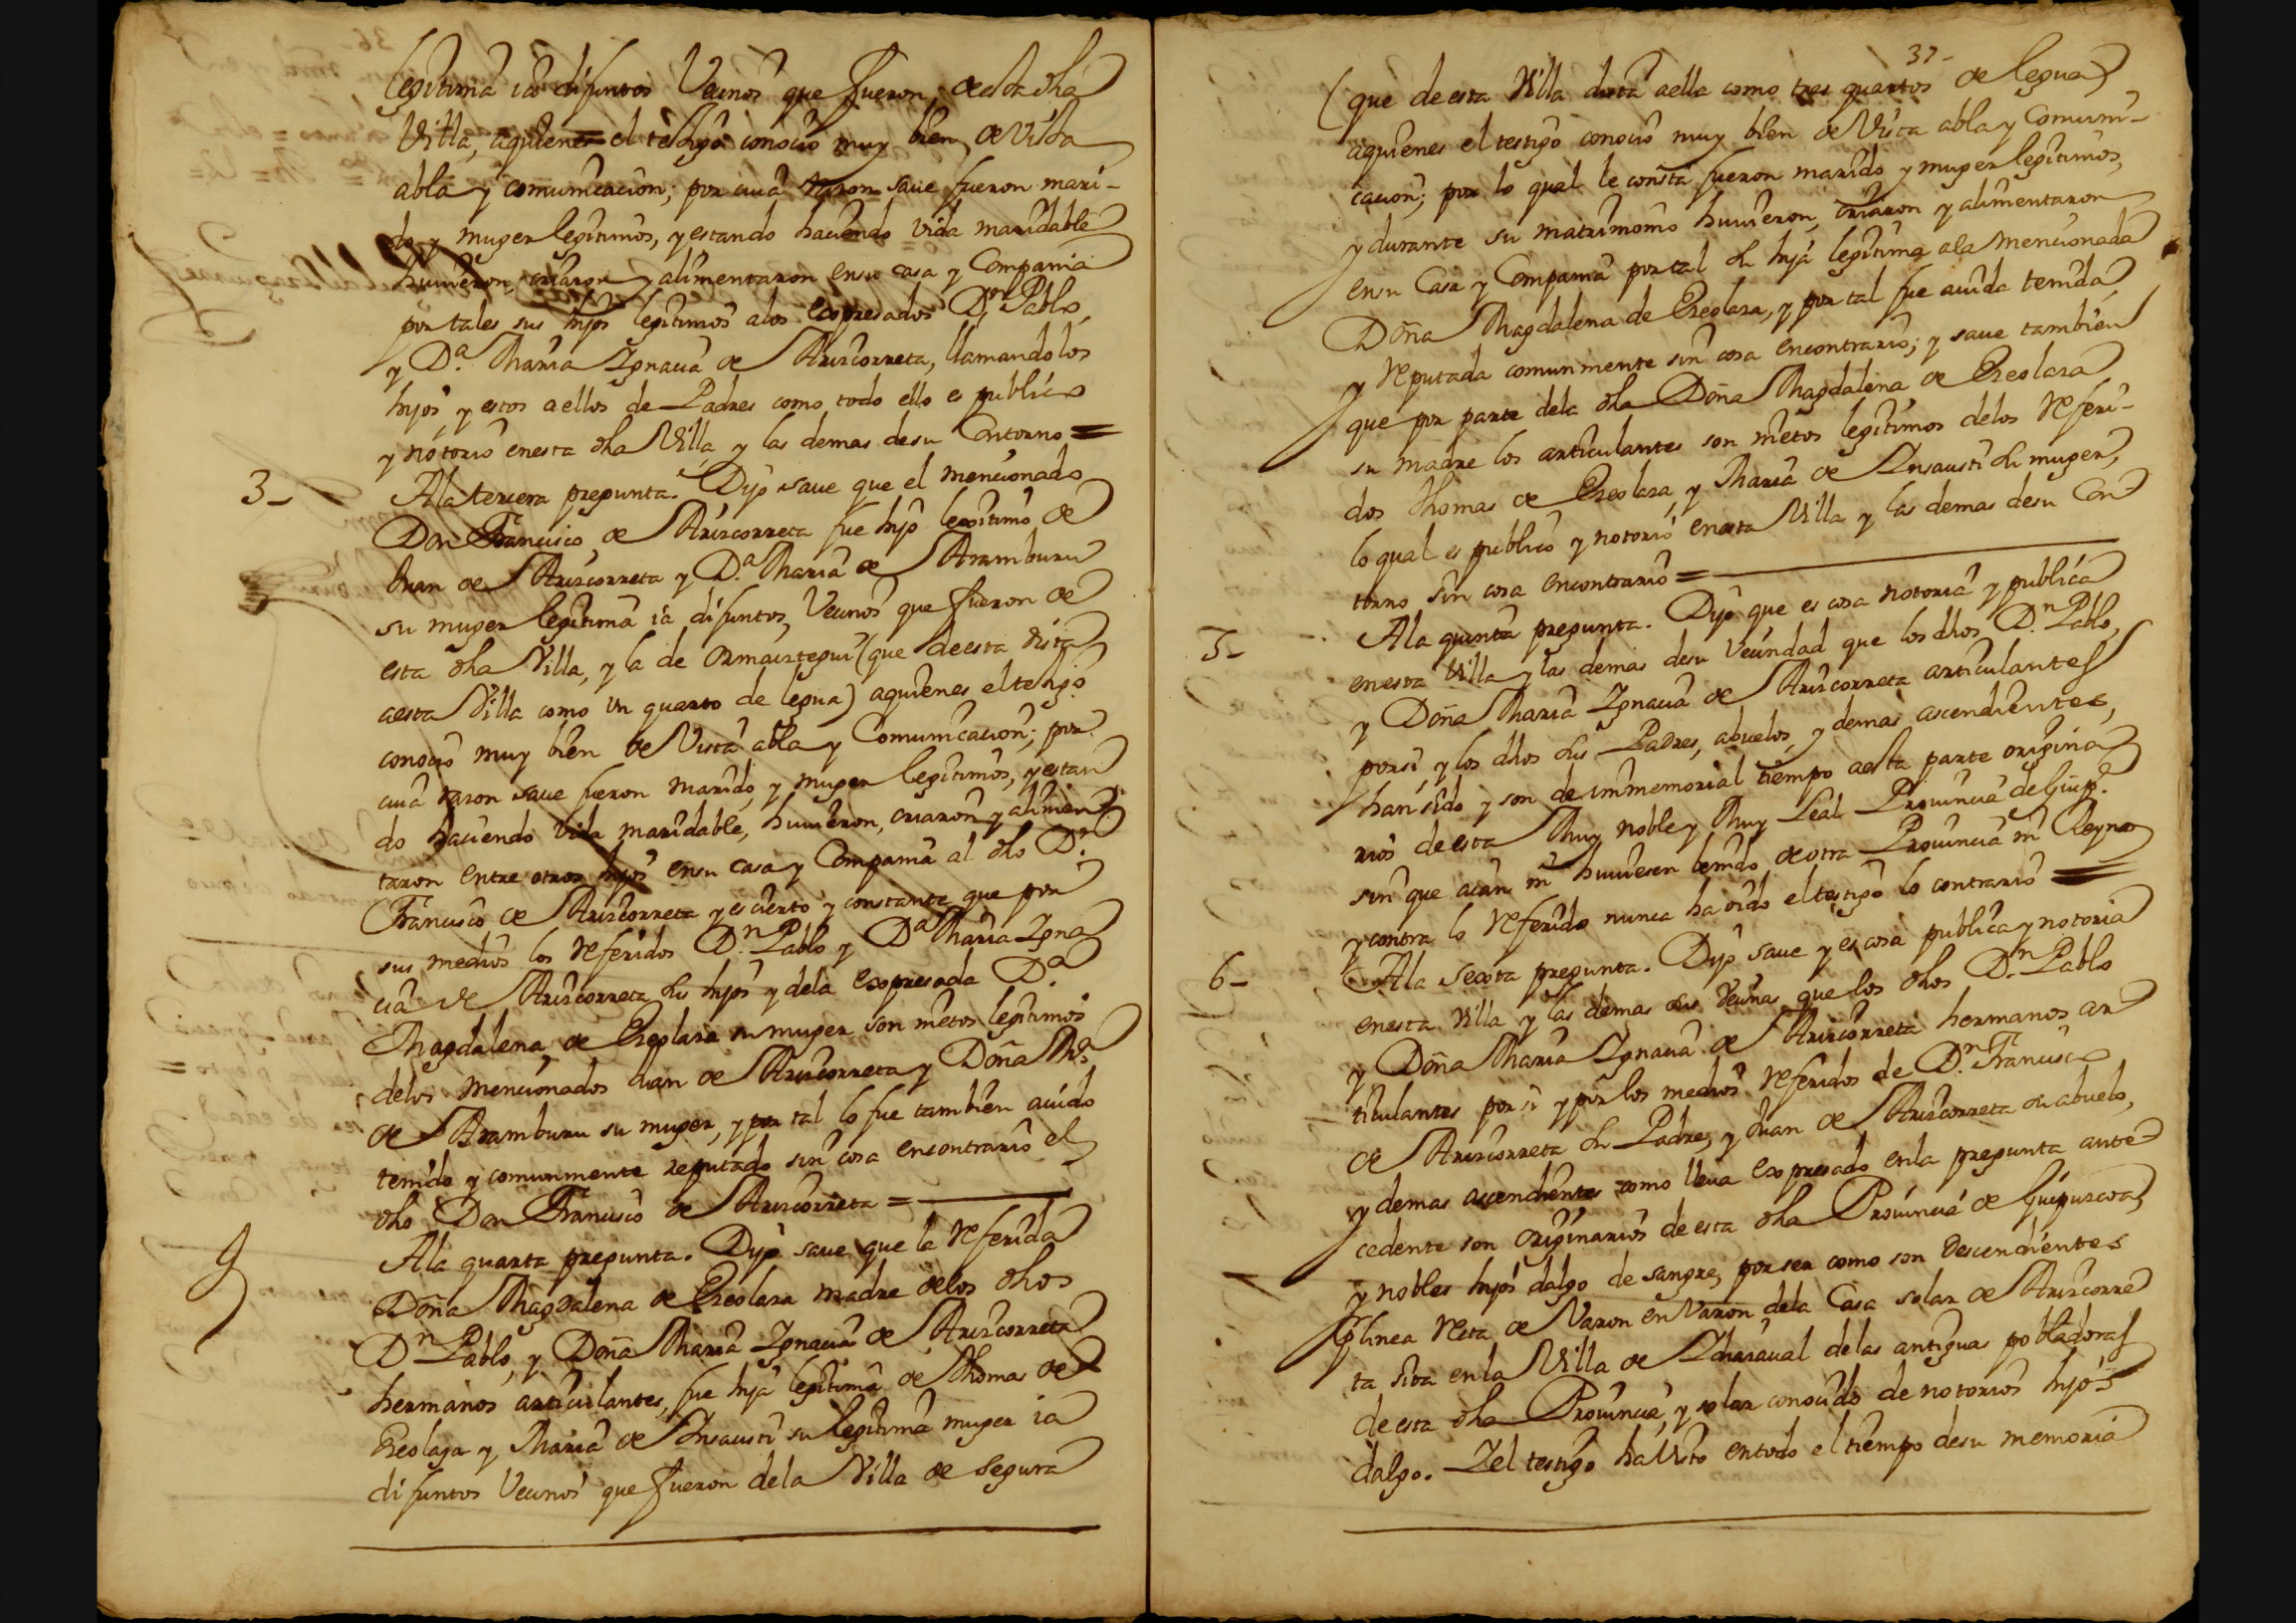 legitima ia difuntos Vecinos que fueron de esta dha
Villa, aquienes el testigo conocio muy bien de Vista
abla y comunicacion; por cuia razon saue fueron mari-
do y muger legitimos, y estando haciendo vida maridable
huuieron, criaron y alimentaron ensu casa y Compania
por tales sus hijos legitimos alos expresados Dn. Pablo,
y Da. Maria Ignacia de Arizcorreta, llamandolos
hijos, y estos aellos de Padres como todo ello es publico
y notorio enesta dha Villa, y las demas desu Contorno =
3- Ala tercera pregunta. Dijo saue que el mencionado
Don Francisco de Arizcorreta fue hijo legitimo de
Juan de Arizcorreta y Da. Maria de Aramburu
su muger legitima ia difuntos, Vecinos que fueron de
esta dha Villa, y la de Ormaiztegui (que deesta dista
aesta Villa como Un quarto de legua) aquienes el testigo
conocio muy bien de Vista abla y Comunicacion; por
cuia razon saue fueron marido, y muger legitimos, y estan
do haciendo Vida maridable, huuieron, criaron y alimen
taron entre otros hijos ensu casa y Compania al dho Dn.
Francisco de Arizcorreta y es cierto y constante que por
sus medios los referidos Dn. Pablo y Da Maria Igna
cia de Arizcorreta sus hijos y dela expresada Da.
Magdalena de Ezeolaza su muger son nietos legitimos
delos mencionados Juan de Arizcorreta y Doña Ma.
de Aramburu su muger, y por tal lo fue tambien auido
tenido y comunmente reputado sin cosa encontrario el
dho Don Francisco de Arizcorreta =
4 Ala quarta pregunta. Dijo saue que la referida
Doña Magdalena de Ezeolaza madre delos dhos
Dn Pablo, y Doña Maria Ignacia de Arizcorreta
hermanos articulantes, fue hija legitima de Thomas de
Ezeolaza y Maria de Insausti su legitima muger ia
difuntos Vecinos que fueron dela Villa de Segura
37-
(que deesta Villa dista aella como tres quartos de legua)
aquienes el testigo conocio muy bien de Vista abla y Comuni-
cacion; por lo qual le consta fueron marido y muger legitimos,
y durante su matrimonio huuieron, criaron y alimentaron
ensu Casa y Compania por tal su hija legitima ala mencionada
Doña Magdalena de Ezeolaza, y por tal fue auida tenida
y reputada comunmente sin cosa encontrario; y saue tambien
que por parte dela dha Doña Magdalena de Ezeolaza
su madre los articulantes son nietos legitimos delos referi-
dos Thomas de Ezeolaza, y Maria de Insausti su muger,
lo qual es publico y notorio enesta Villa y las demas desu Con
torno sin cosa encontrario =
5- Ala quinta pregunta. Dijo que es cosa notoria y publica
enesta Villa y las demas desu Vecindad que los dhos Dn. Pablo,
y Doña Maria Ignacia de Arizcorreta articulantes
porsi y los dhos sus Padres, abuelos, y demas ascendientes,
han sido y son de immemorial tiempo aesta parte origina
rios deesta Muy noble y Muy Leal Prouincia de Guipa.
sin que aian ni huuiesen benido de otra Prouincia ni Reyno
y contra lo referido nunca ha oido el testigo lo contrario =
6- Ala sexta pregunta. Dijo saue y es cosa publica y notoria
enesta Villa y las demas sus Vecinas que los dhos Dn. Pablo
y Doña Maria Ignacia de Arizcorreta hermanos ar
ticulantes por si y por los medios referidos de Dn. Francisco
de Arizcorreta su Padre, y Juan de Arizcorreta su abuelo,
y demas ascendientes como lleua expresado enla pregunta ante
cedente son originarios de esta dha Prouincia de Guipuzcoa,
y nobles hijos dalgo de sangre, por ser como son Descendientes
pr linea recta de Varon en Varon dela Casa solar de Arizcorre
ta sita enla Villa de Ichasaual delas antiguas pobladoras
deesta dha Prouincia, y solar conocido de notorios hijos
dalgo. I el testigo ha Visto entodo el tiempo desu memoria